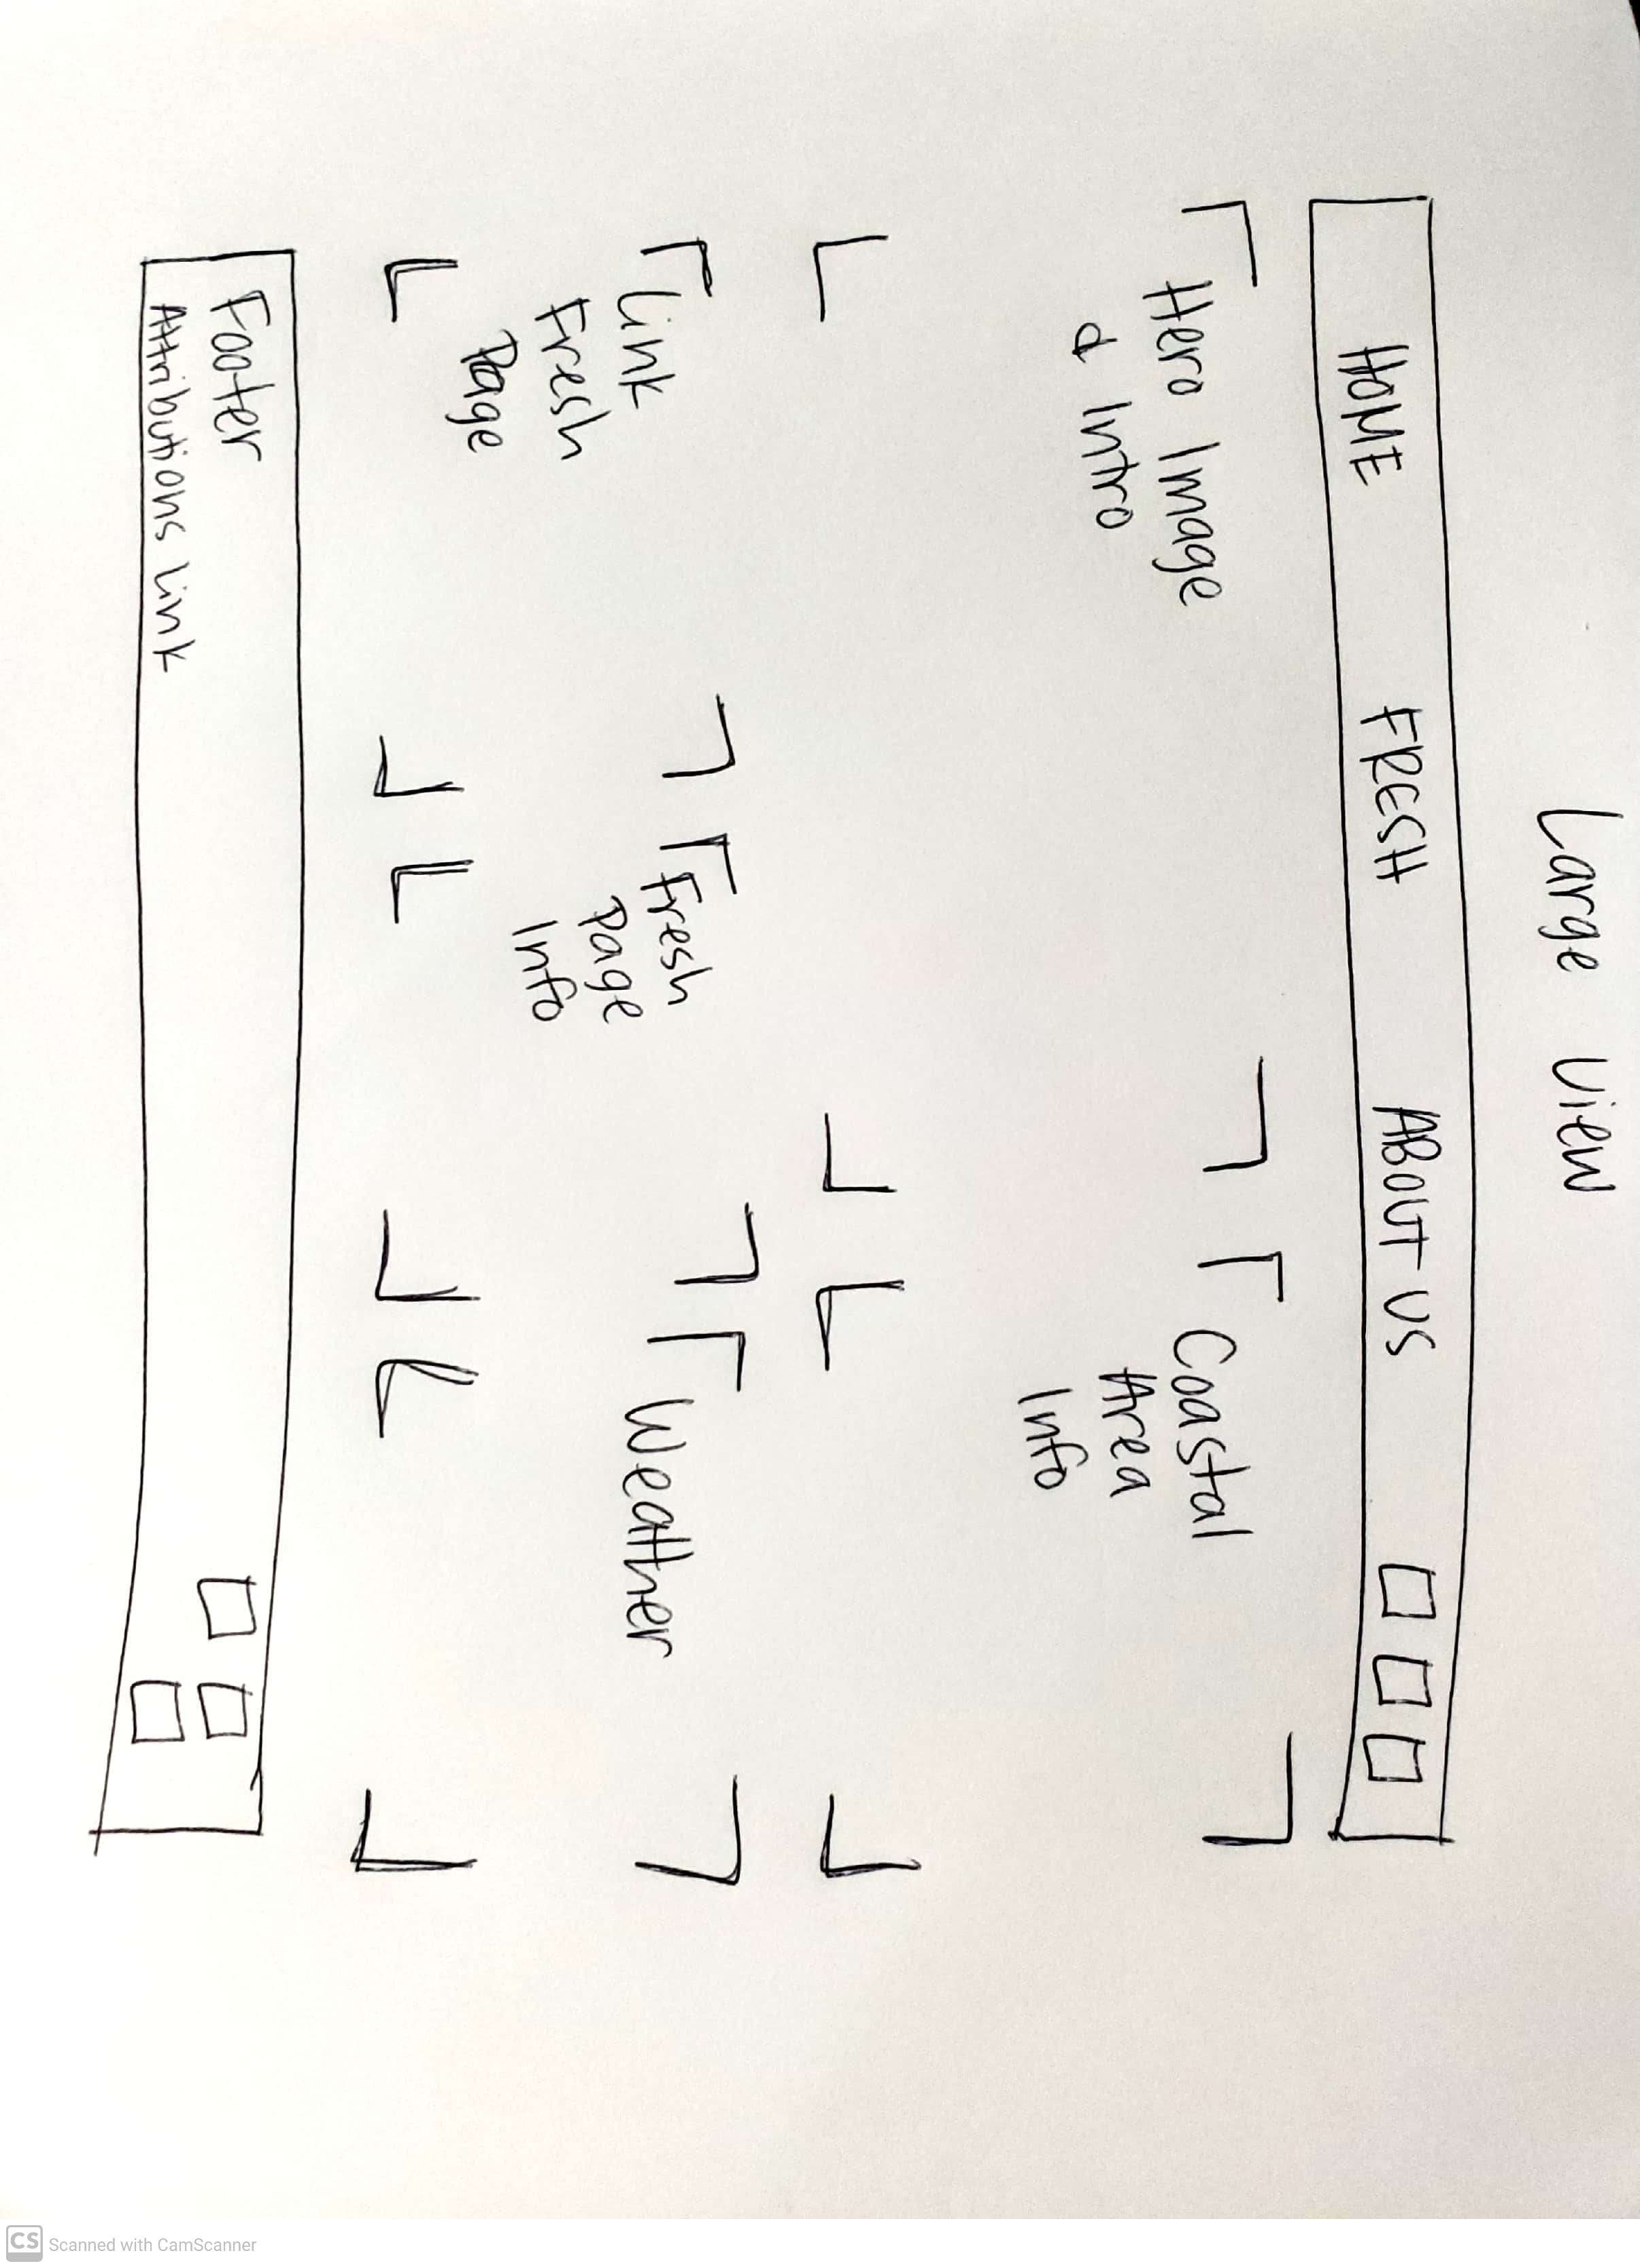 Large View
HOME FRESH ABOUT US
Hero Image
& Intro
Coastal
Area
Info
Link
Fresh
Page
Fresh
Page
Info
Weather
Footer
Attributions Link
CS Scanned with CamScanner